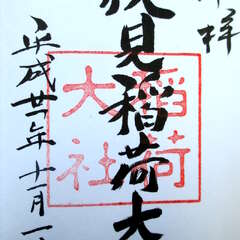 拝
伏見稲荷大
稲荷
大社
平成廿年十一月一